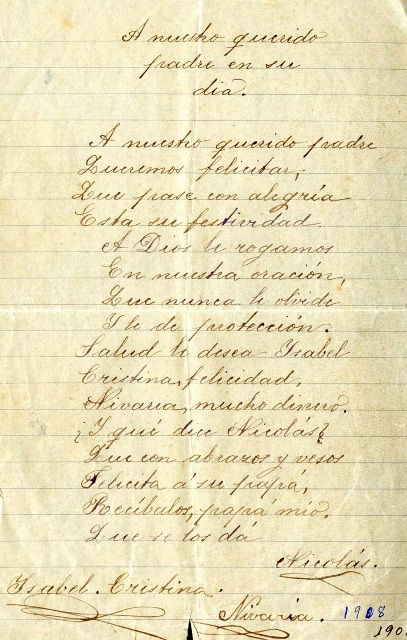 A nuestro querido
padre en su
dia.
A nuestro querido padre
Queremos felicitar,
Que pase con alegría
Esta su festividad.
A Dios le rogamos
En nuestra oración,
Que nunca le olvide
Y le de protección.
Salud le desea Ysabel
Cristina, felicidad,
Nivaria, mucho dinero.
¿Y qué dice Nicolás?
Que con abrazos y vesos
Felicita á su papá,
Recíbalos, papá mío.
Que se los dá
Nicolás.
Ysabel. Cristina.
Nivaria. 1908
190